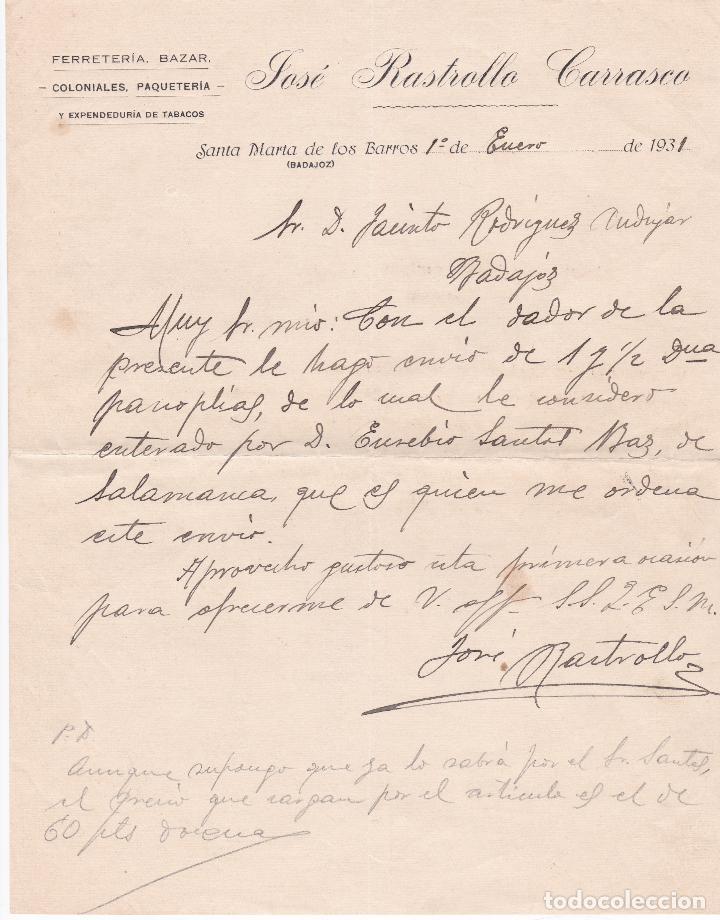 FERRETERÍA, BAZAR,
COLONIALES, PAQUETERÍA
Y EXPENDEDURÍA DE TABACOS
José Rastrollo Carrasco
Santa Marta de los Barros 1º de Enero de 1931
(BADAJOZ)
Sr. D. Jacinto Rodríguez Andujar
Badajóz
Muy Sr. mio: Con el dador de la
presente le hago envio de 1 y 1/2 Dna
panoplias, de lo cual le considero
enterado por D. Eusebio Santos Baz, de
Salamanca, que es quien me ordena
este envio.
Aprovecho gustoso esta primera ocasión
para ofrecerme de V. aff. S.S.Q.E.S.M.
José Rastrollo
P.D.
Aunque supongo que ya lo sabrá por el Sr. Santos,
el precio que cargan por el artículo es el de
60 pts docena
todocoleccion